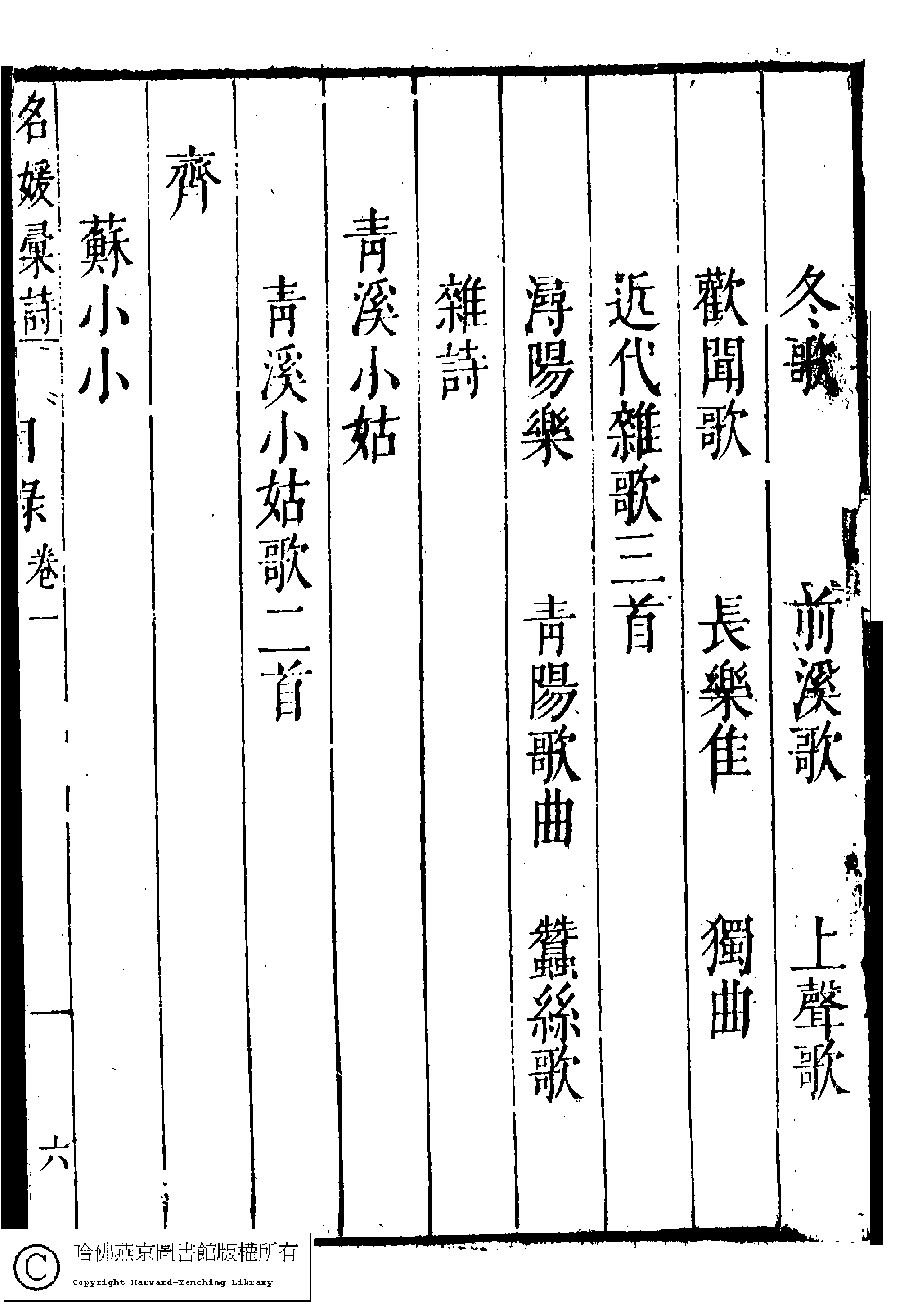 冬歌　前溪歌　上聲歌
歡聞歌　長樂佳　獨曲
近代雜歌三首
潯陽樂　青陽歌曲　蠶絲歌
雜詩
青溪小姑
青溪小姑歌二首
齊
蘇小小
名媛彙詩　目錄　卷一　六
哈佛燕京圖書館版權所有
Copyright Harvard-Yenching Library